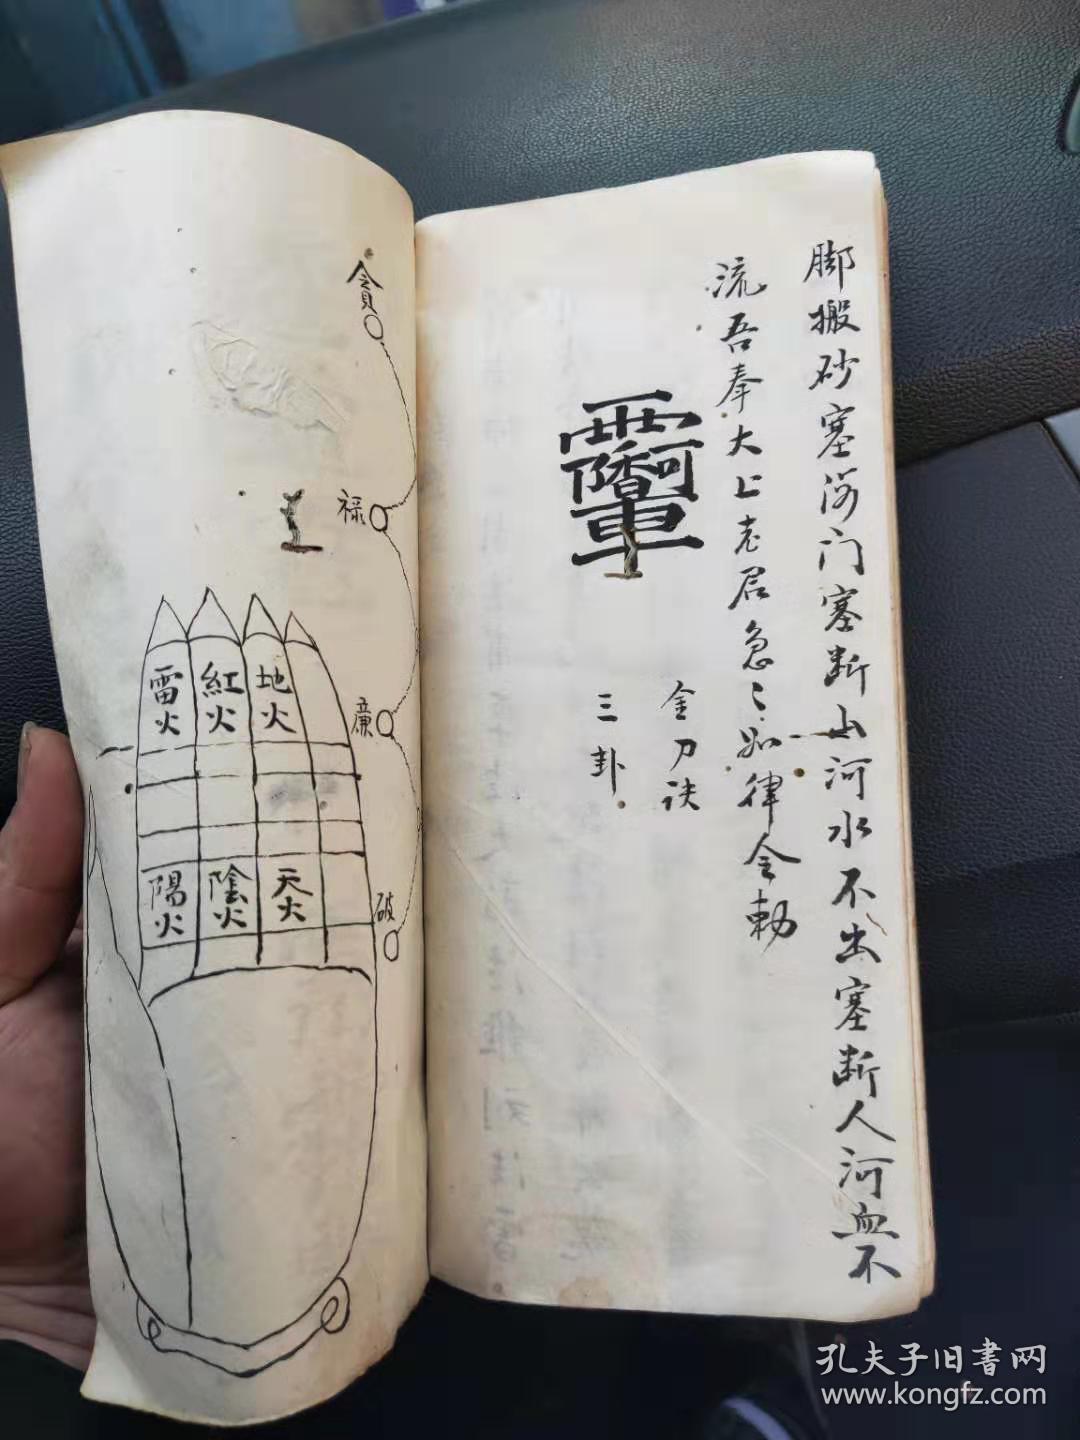 脚搬砂塞河门塞断山河水不出塞断人河血不
流吾奉大上老君急〻如律令勅
金刀诀
三卦
貪
禄
廉
破
地火
紅火
雷火
天火
陰火
陽火
孔夫子旧書网
www.kongfz.com